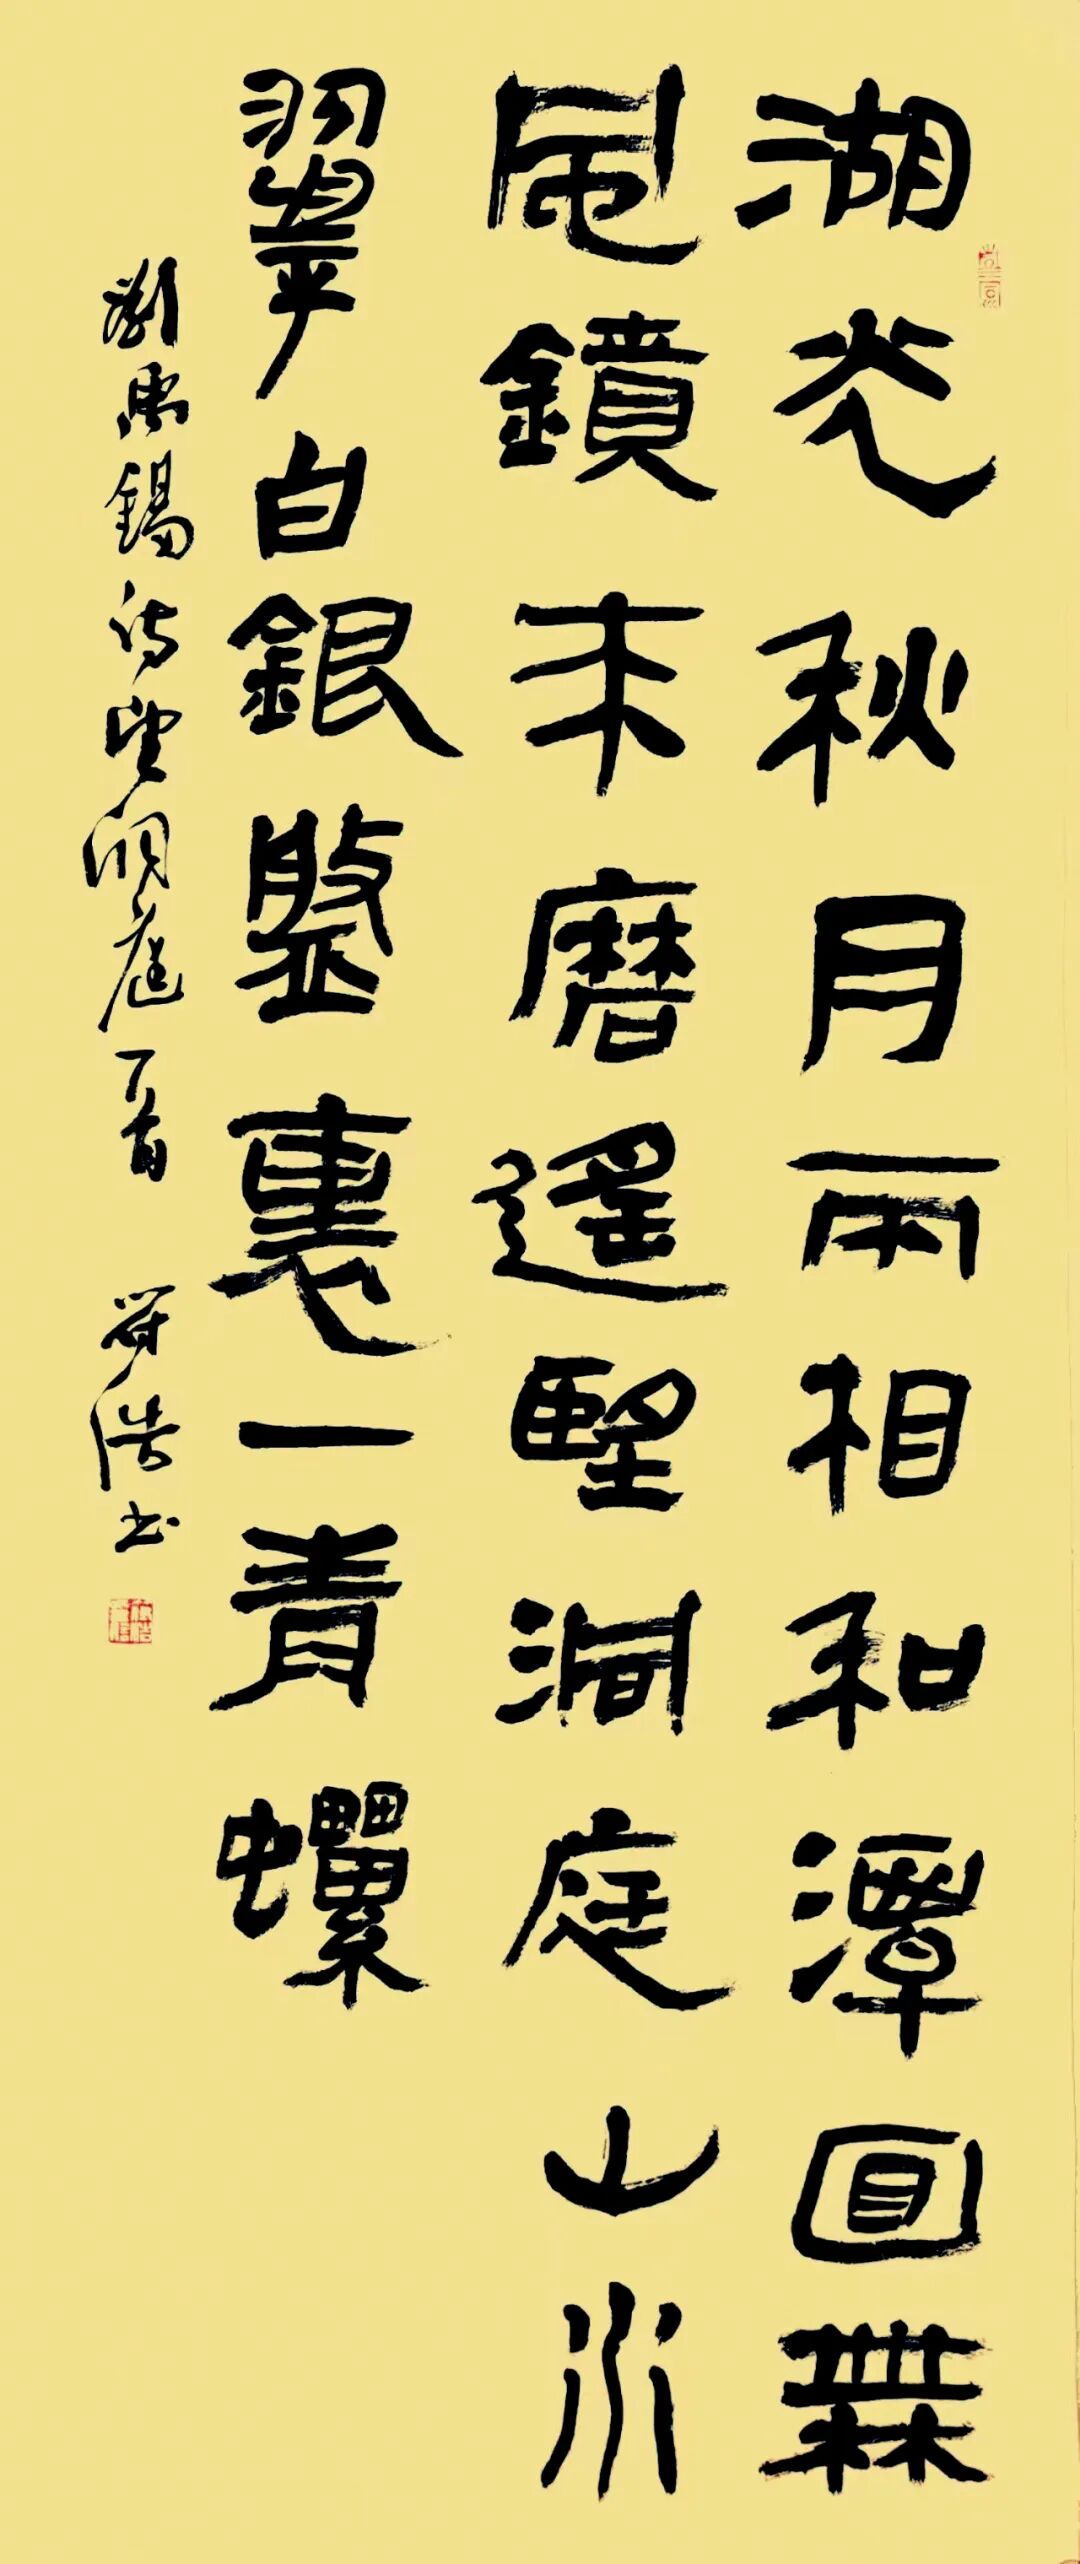 湖光秋月兩相和潭面無
風鏡未磨遙望洞庭山水
翠白銀盤裏一青螺
劉禹錫詩望洞庭一首 浩書